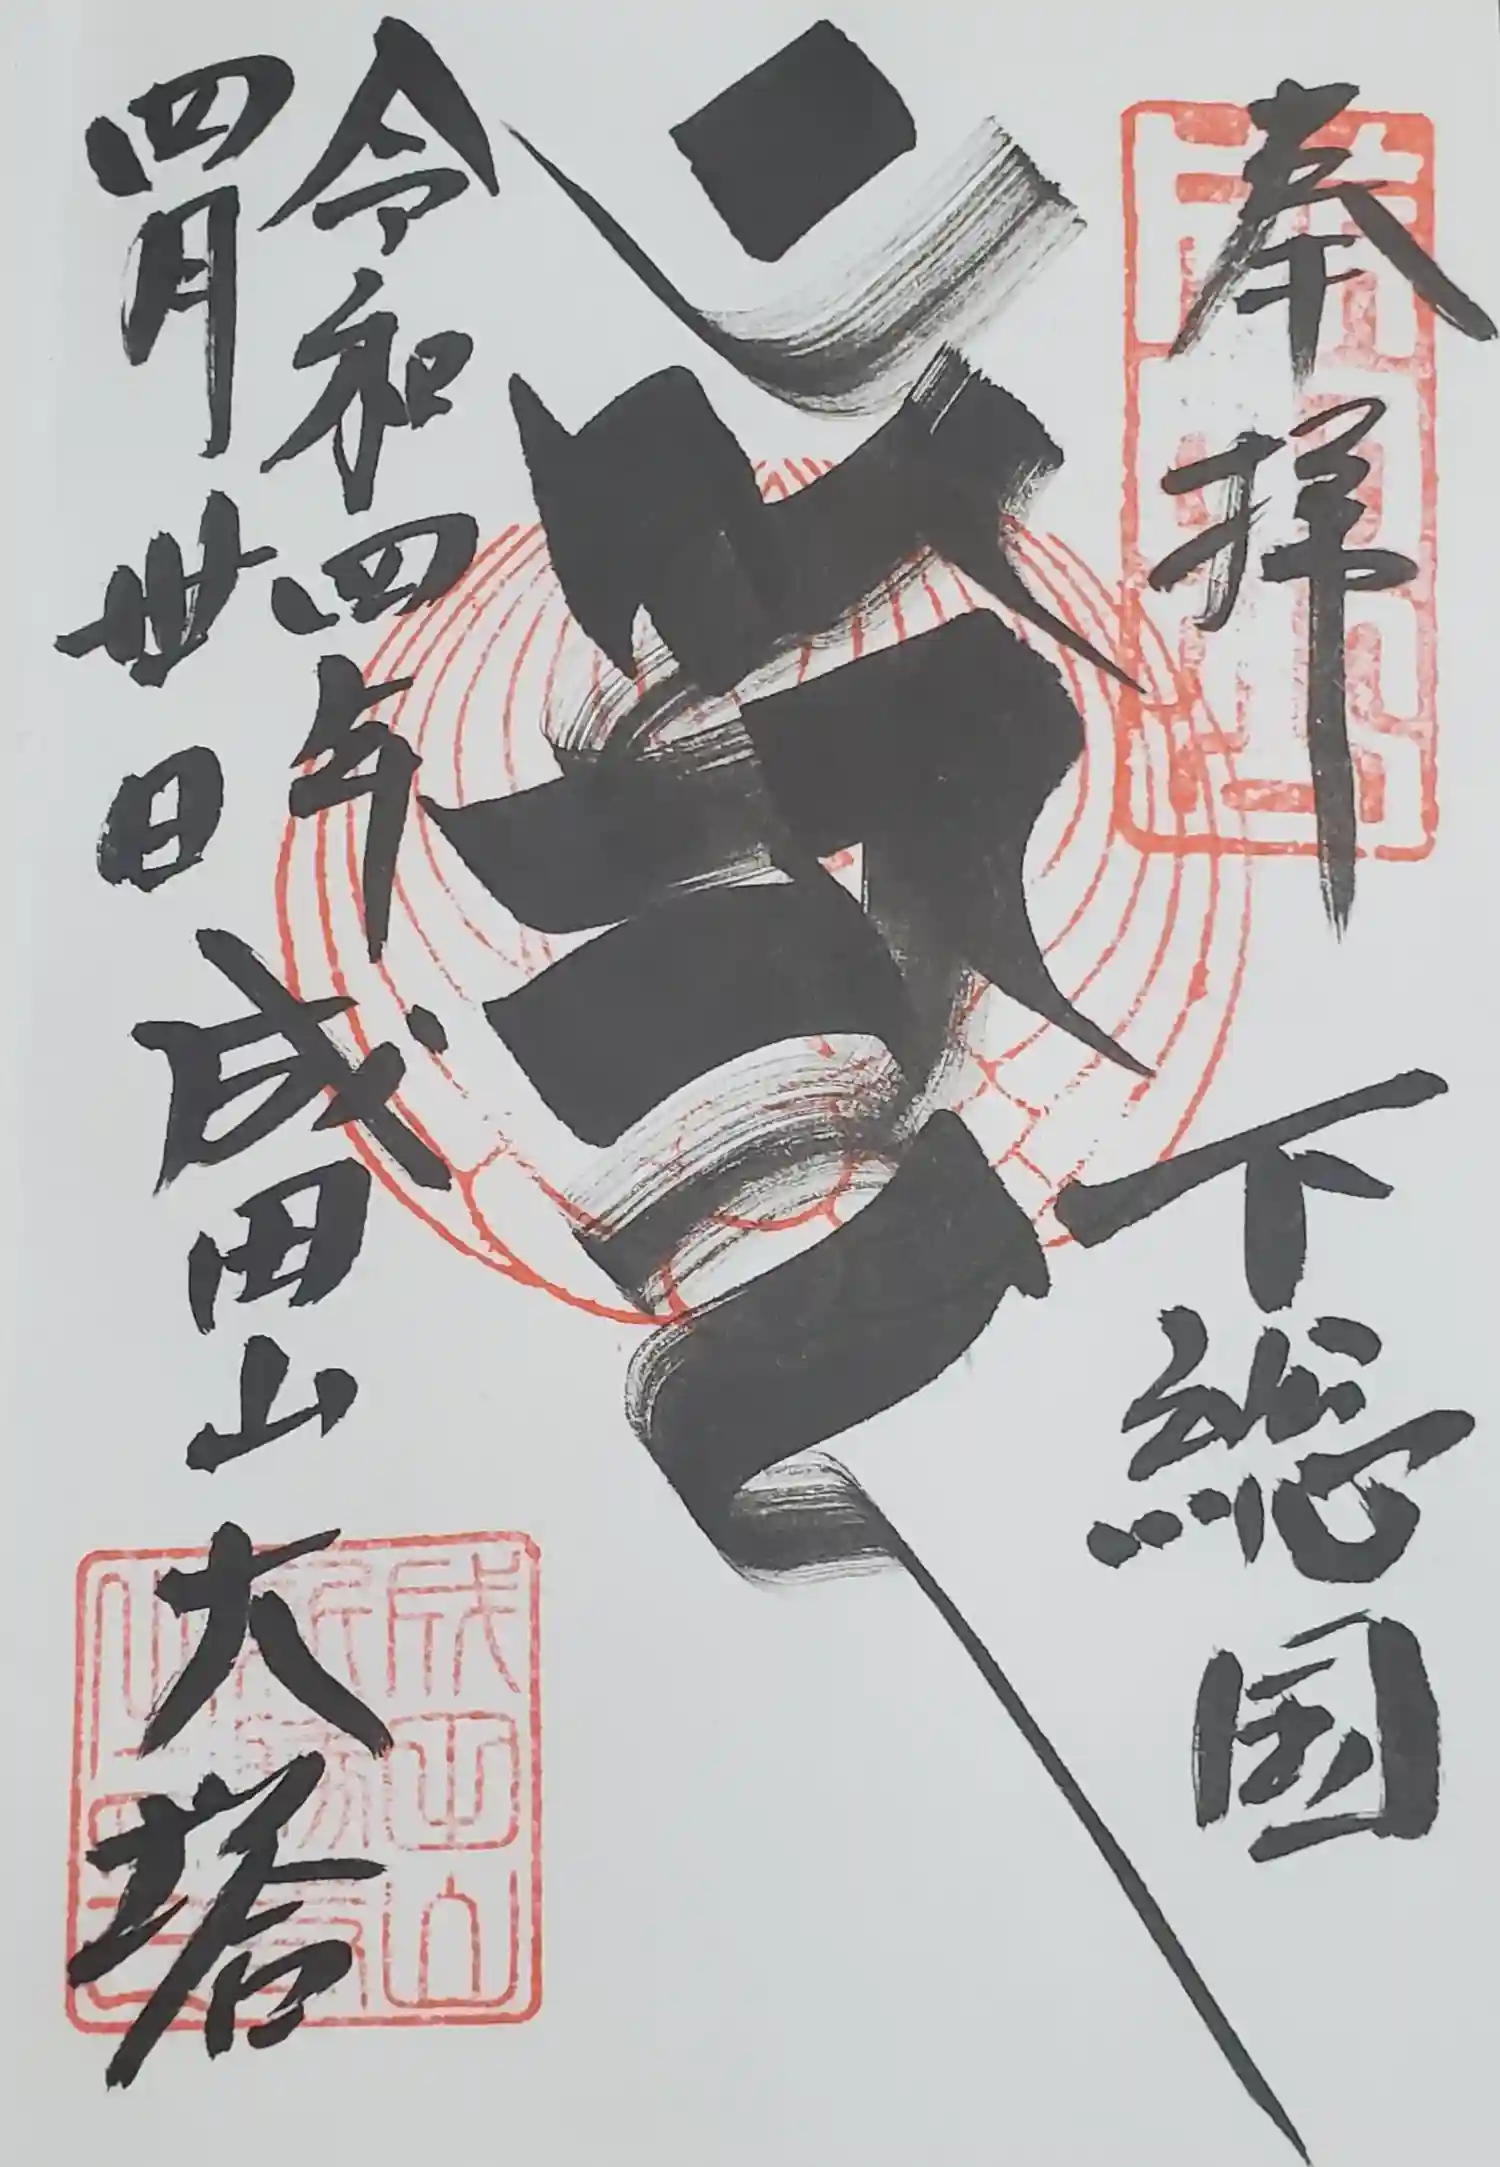 奉拝
下総国
令和四年
四月丗日
成田山
大塔